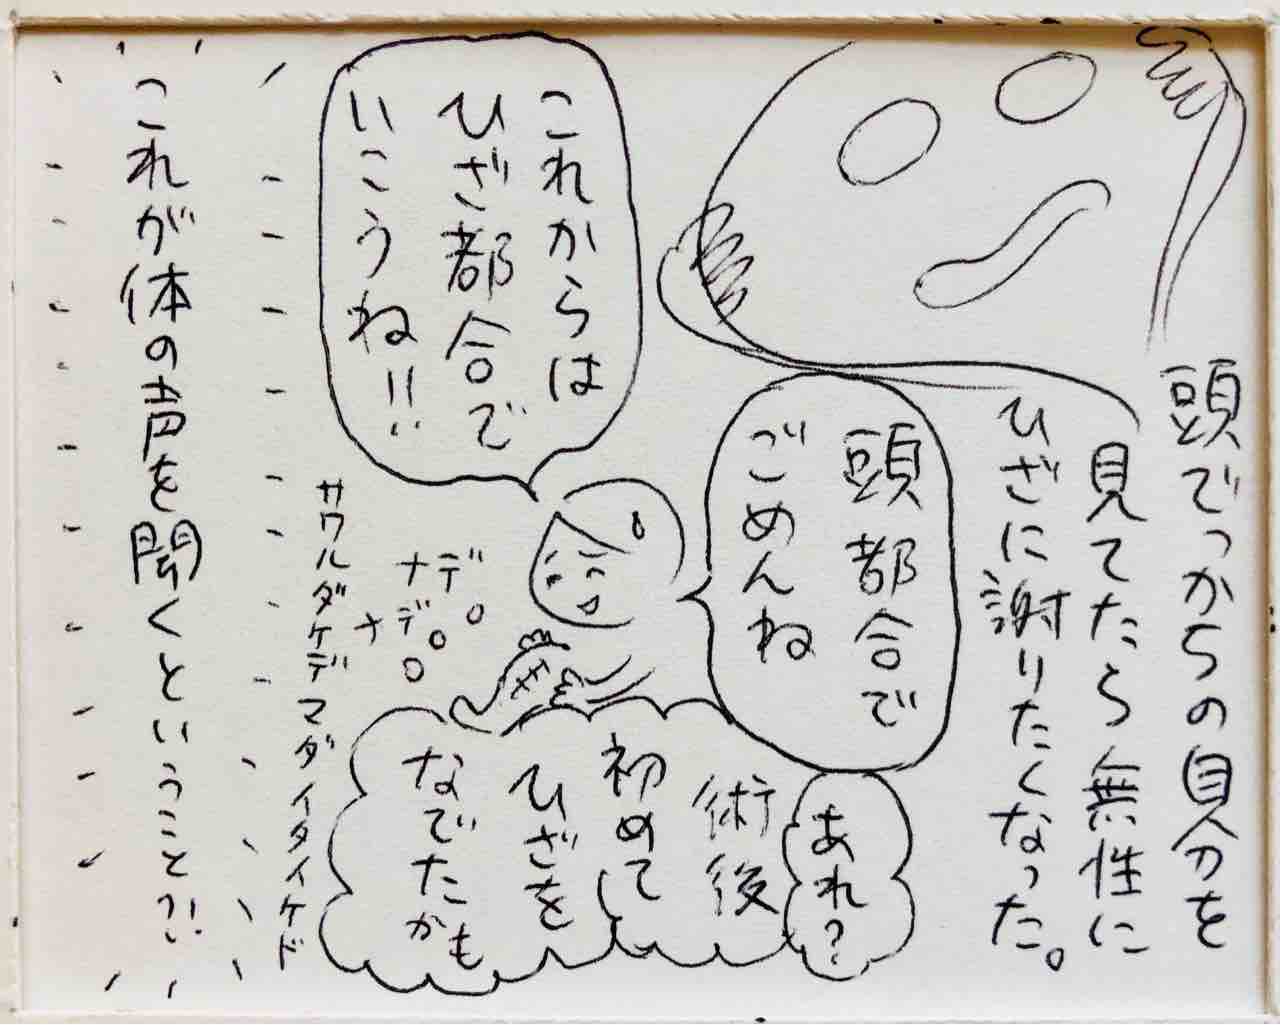 頭でっかちの自分を
見てたら無性に
ひざに謝りたくなった。
頭都合で
ごめんね
これからは
ひざ都合で
いこうね!!
ナデ
ナデ
サワルダケデマダイタイケド
あれ?
術後
初めて
ひざを
なでたかも
これが体の声を聞くということ?!